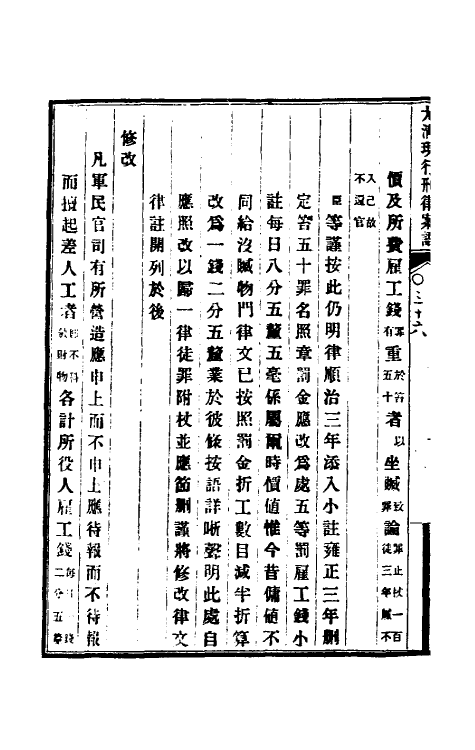 大清現行刑律案語
〇三十六
價及所費雇工錢罪有重於笞五十者以坐贓致罪論罪止杖一百徒三年贓不
入己故不還官
臣等謹按此仍明律順治三年添入小註雍正三年刪
定笞五十罪名照章罰金應改爲處五等罰雇工錢小
註每日八分五釐五毫係屬爾時價值惟今昔傭值不
同給沒贓物門律文已按照罰金折工數目減半折算
改爲一錢二分五釐業於彼條按語詳晰聲明此處自
應照改以歸一律徒罪附杖並應節刪謹將修改律文
律註開列於後
修改
凡軍民官司有所營造應申上而不申上應待報而不待報
而擅起差人工者即不科斂財物各計所役人雇工錢每日一錢二分五釐